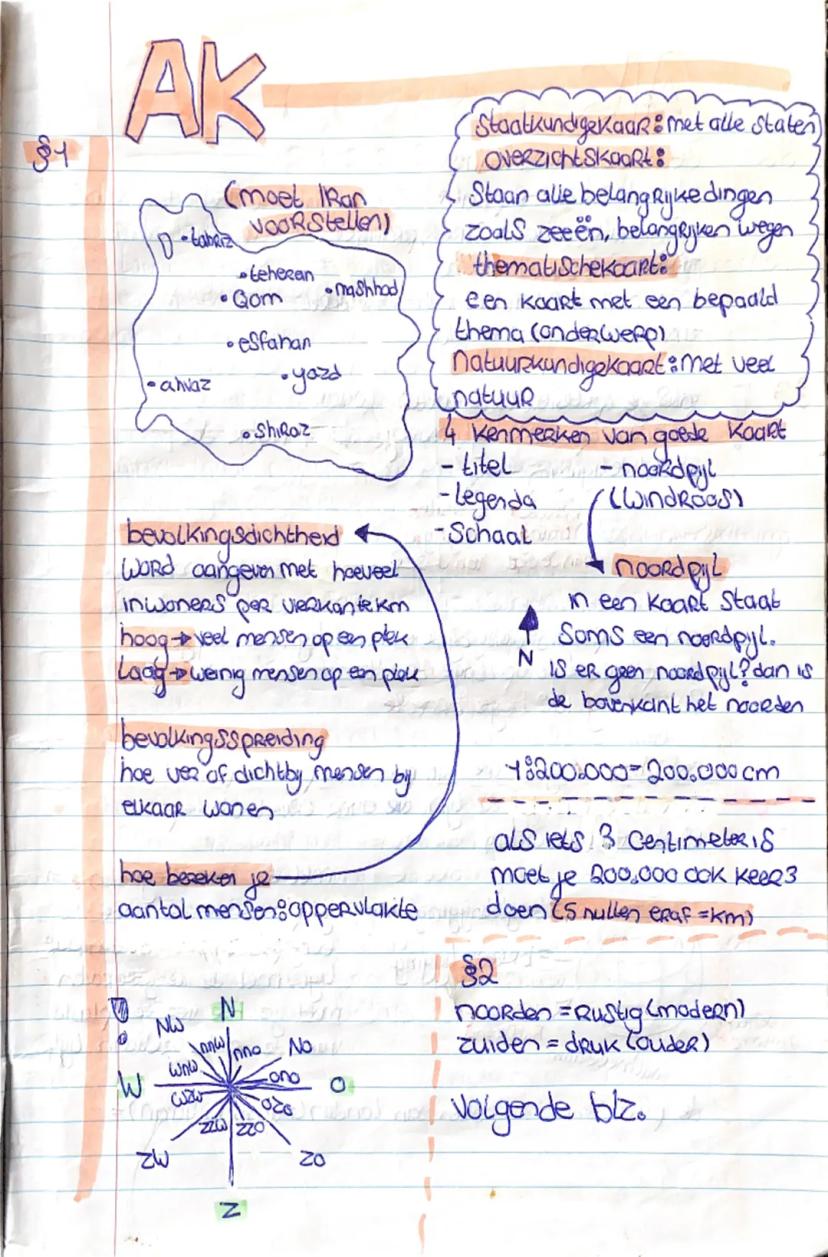 AK
§1
(moet IRan
voorstellen)
•tabriz
•teheran
•Qom
•mashhad
•esfahan
•yazd
•ahvaz
•Shiraz
Staatkundigekaar: met alle staten
overzichtskaart:
Staan alle belangrijke dingen
zoals zeeën, belangrijken wegen
thematischekaart:
een kaart met een bepaald
thema (onderwerp)
natuurkundigekaart: met veel
natuur
4 kenmerken van goede kaart
- titel - noordpijl
-legenda (windroos)
-Schaal
noordpijl
in een kaart staat
Soms een noordpijl.
N
is er geen noordpijl? dan is
de bovenkant het noorden
1:200.000=200.000cm
als iets 3 centimeter is
moet je 200.000 ook keer 3
doen (5 nullen eraf = km)
bevolkingsdichtheid
word aangeven met hoeveel
inwoners per vierkante km
hoog → veel mensen op een plek
Laag → weinig mensen op een plek
bevolkingsspreiding
hoe ver of dichtbij mensen bij
elkaar wonen
hoe bereken je
aantal mensen:oppervlakte
N
NW
nnw
nno
NO
wnw
ono
W
O
wzw
ozo
zzw
zzo
ZW
ZO
Z
§2
noorden = Rustig (modern)
zuiden = druk (ouder)
volgende blz.